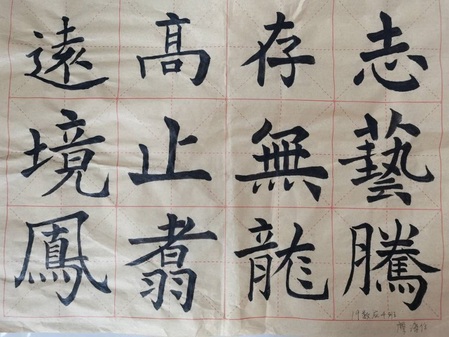 志存高遠
藝無止境
騰龍翥鳳